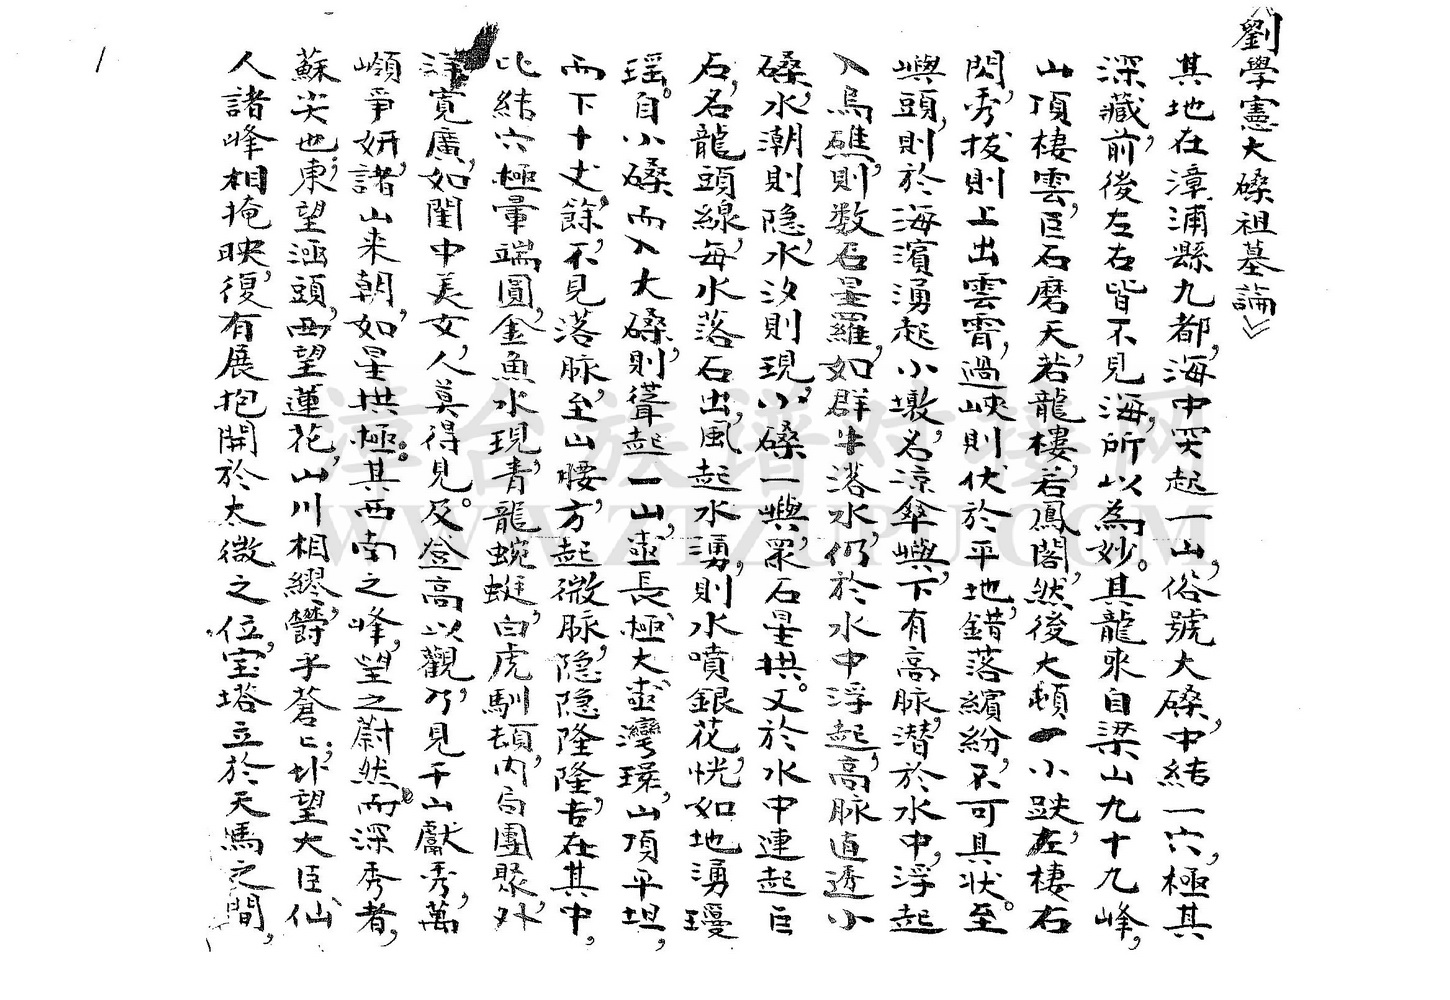 劉學憲大磉祖墓論》
其地在漳浦縣九都，海中突起一山，俗號大磉，中結一穴，極其
深藏，前後左右皆不見海，所以為妙。其龍來自梁山九十九峰，
山頂棲雲，巨石磨天，若龍樓，若鳳閣，然後大頓一小跌，左棲右
閃，秀拔則上出雲霄，過峽則伏於平地，錯落繽紛，不可具狀。至
嶼頭，則於海濱湧起小墩，名涼傘嶼，下有高脉，潛於水中，浮起
入烏礁，則数石星羅，如群牛落水，仍於水中浮起，高脉直透小
磉，水潮則隐，水汐則現，小磉一嶼，眾石星拱。又於水中連起巨
石，名龍頭線，每水落石出，風起水湧，則水噴銀花，恍如地湧瓊
瑶。自小磉而入大磉，則聳起一山，壶長極大，壶灣環，山頂平坦，
而下十丈餘，不見落脉，至山腰方，起微脉，隐隐隆隆，吉在其中，
比結穴極暈端圓，金魚水現，青龍蜿蜒，白虎馴頓，内局團聚，外
洋寬廣，如閨中美女，人莫得見。及登高以觀，乃見千山獻秀，萬
嶺爭妍，諸山来朝，如星拱極。其西南之峰，望之蔚然而深秀者，
蘇尖也，東望湎頭，西望蓮花，山川相繆，欝乎蒼匕，北望大臣仙
人諸峰相掩映，復有展抱開於太微之位，宝塔立於天馬之間，
1
漳台族谱对接网
WWW.ZTZUPU.COM